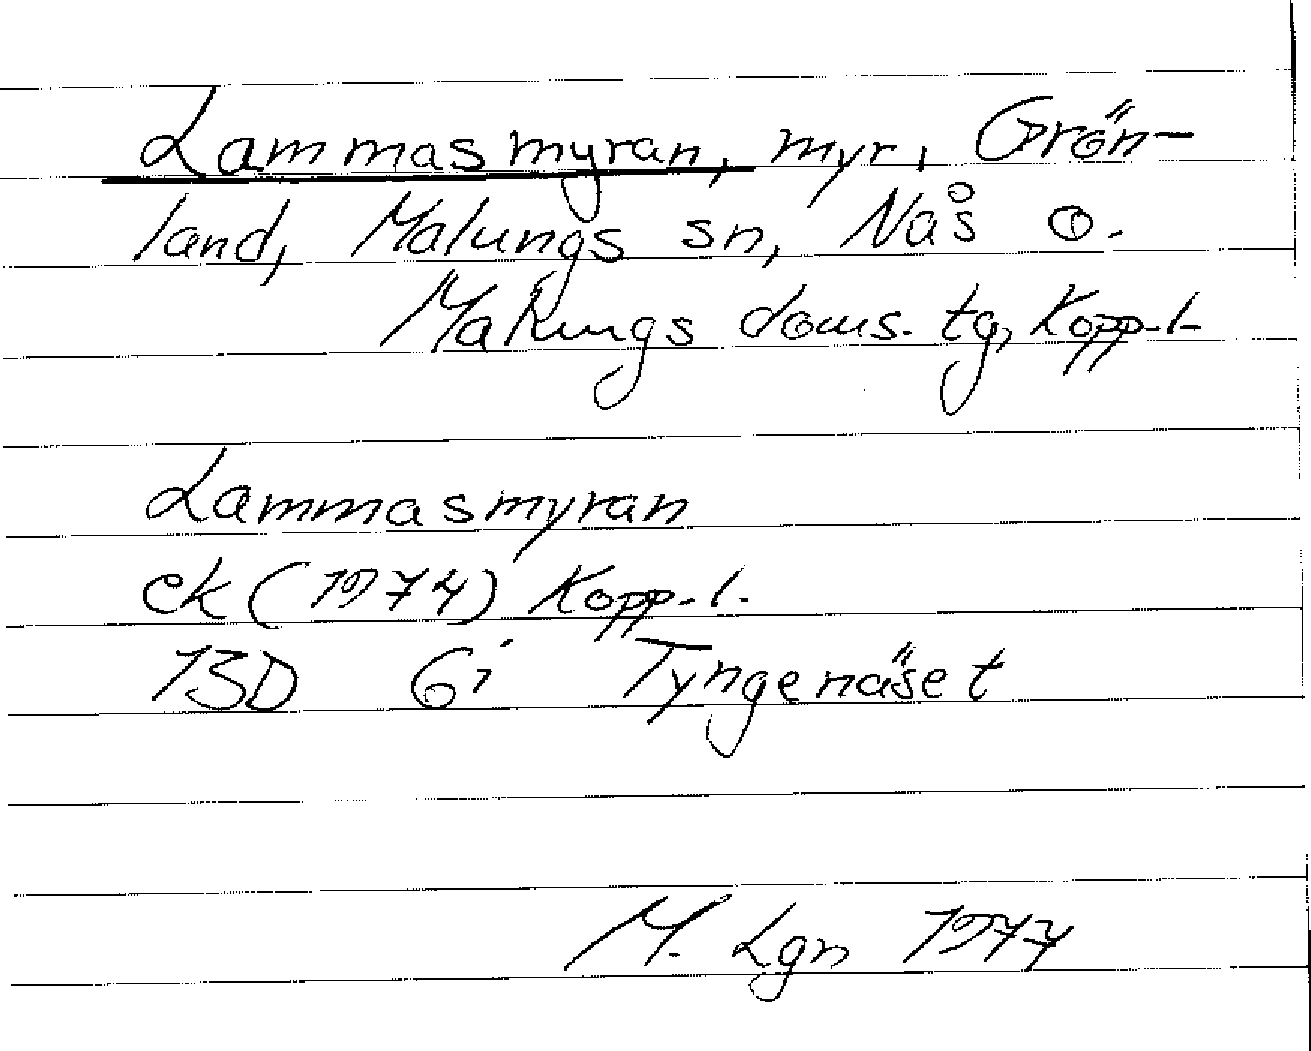 Lammasmyran, myr, Grön-
land, Malungs sn, Nås o.
Malungs doms. tg, Kopp.l.
Lammasmyran
ek (1974) Kopp.l.
13D 6i Tyngenäset
M. Lgn 1977